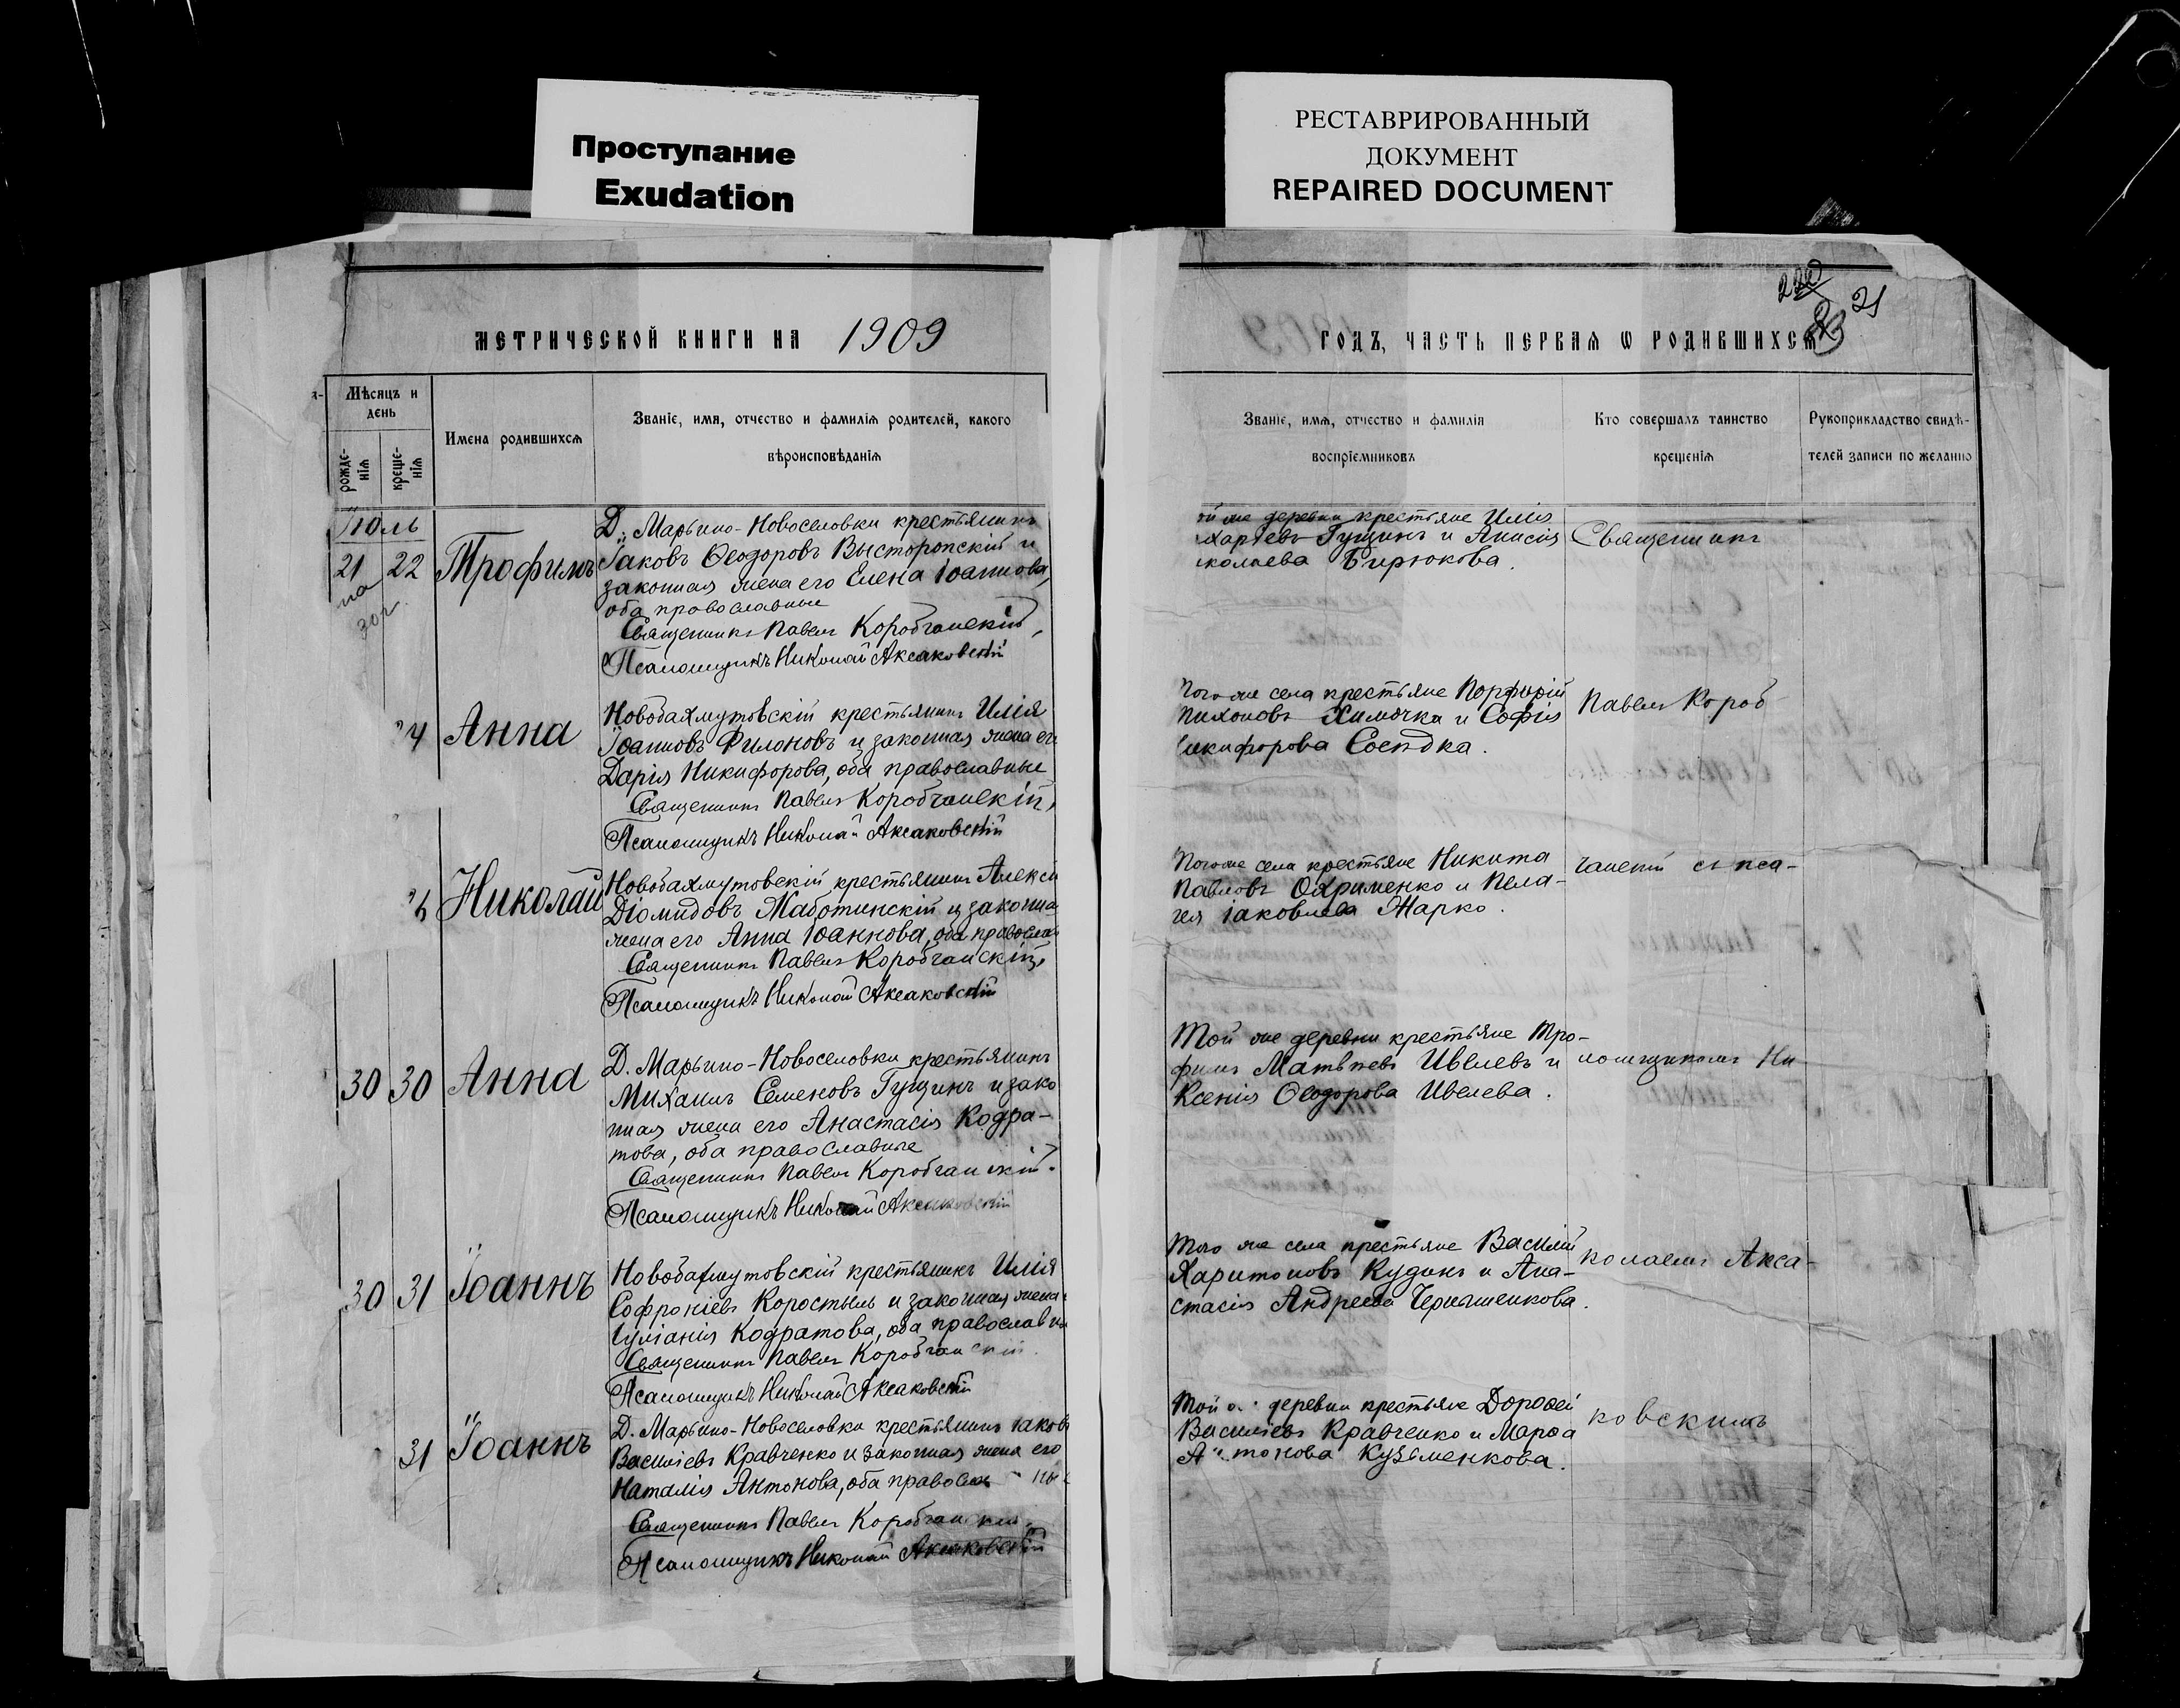 Проступание
Exudation
РЕСТАВРИРОВАННЫЙ
ДОКУМЕНТ
REPAIRED DOCUMENT
МЕТРИЧЕСКОЙ КНИГИ НА 1909
Мѣсяцъ и
день
рожде-
нія
креще-
нія
Имена родившихся
Званіе, имя, отчество и фамилія родителей, какого
вѣроисповѣданія
Іюль
21 22 Трофимъ
Д. Марьино-Новоселовки крестьянинъ
Іаковъ Ѳеодоровъ Высторопскій и
законная жена его Елена Іоаннова,
оба православные
Священникъ Павелъ Коробчанскій,
Псаломщикъ Николай Аксаковскій
Анна
Новобахмутовскій крестьянинъ Илія
Іоанновъ Филоновъ и законная жена его
Дарія Никифорова, оба православные
Священникъ Павелъ Коробчанскій,
Псаломщикъ Николай Аксаковскій
Николай
Новобахмутовскій крестьянинъ Алексій
Діомидовъ Жаботинскій и законна
жена его Анна Іоаннова, оба православ
Священникъ Павелъ Коробчанскій,
Псаломщикъ Николай Аксаковскій
30 30 Анна
Д. Марьино-Новоселовки крестьянинъ
Михаилъ Семеновъ Гущинъ и зако
нная жена его Анастасія Кодра-
това, оба православные
Священникъ Павелъ Коробчанскій.
Псаломщикъ Николай Аксаковскій
30 31 Іоаннъ
Новобахмутовскій крестьянинъ Илія
Софроніевъ Коростыль и законная жена
Іуліанія Кодратова, оба православны
Священникъ Павелъ Коробчанскій.
Псаломщикъ Николай Аксаковскій
31 Іоаннъ
Д. Марьино-Новоселовки крестьянинъ Іаковъ
Василіевъ Кравченко и законная жена его
Наталія Антонова, оба православ ны
Священникъ Павелъ Коробчанскій.
Псаломщикъ Николай Аксаковскій
21
ГОДЪ, ЧАСТЬ ПЕРВАЯ Ѡ РОДИВШИХСЯ
Званіе, имя, отчество и фамилія
воспріемниковъ
Кто совершалъ таинство
крещенія
Рукоприкладство свидѣ-
телей записи по желанію
ой же деревни крестьяне Илія
Гущинъ и Анисія
колаева Бирюкова.
Священникъ
Того же села крестьяне Порфирій
Тихоновъ Химочка и Софія
Никифорова
Павелъ Короб
Того же села крестьяне Никита
Павловъ Охрименко и Пела-
гея Іаковлева Жарко.
чанскій съ пса-
Той же деревни крестьяне Тро-
фимъ Матвѣевъ Ивлевъ и
Ксенія Ѳеодорова Ивлева.
ломщикомъ Ни
Того же села крестьяне Василій
Харитоновъ Кудинъ и Ана-
стасія Андреева Чернышенкова.
колаемъ Акса-
Той деревни крестьяне Дороѳей
Василіевъ Кравченко и Марѳа
Антонова Кузьменкова.
ковскимъ